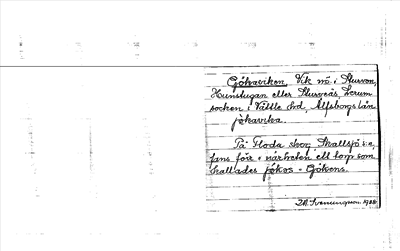 Gökaviken. Vik nö. i Stursven,
Hunstugan eller Sturveås, Lerum
socken i Vättle hrd, Älfsborgs län
jökavika.
På Floda skog, Skallsjö s:n,
fans förr i närheten ett torp som
kallades jökås - Gökens.
D.A. Svenungsson. 1928